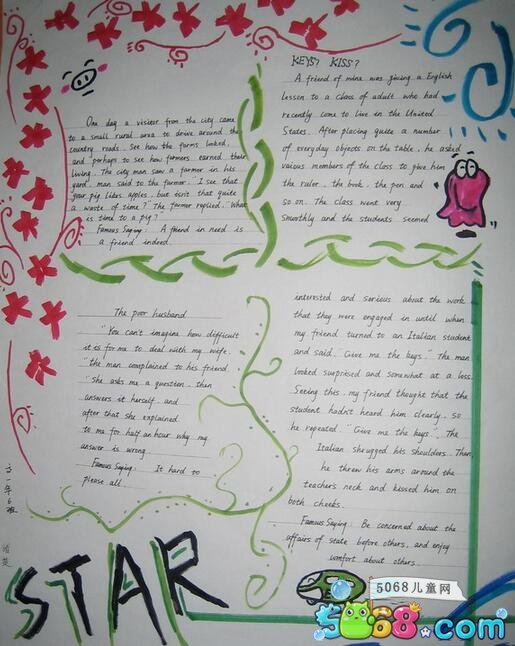 One day a visitor from the city came
to a small rural area to drive around the
country roads. See how the farms looked,
and perhaps to see how farmers earned their
living. The city man saw a farmer in his
yard. man said to the farmer. I see that
your pig likes apples, but isn't that quite
a waste of time?" The farmer replied. "What
is time to a pig?"
Famous Saying: A friend in need is
a friend indeed.
KEYS? KISS?
A friend of mine was giving a English
lesson to a class of adult who had
recently come to live in the United
States. After placing quite a number
of everyday objects on the table, he asked
vaious members of the class to give him
the ruler. the book. the pen and
so on. The class went very
smoothly and the students seemed
The poor husband
"You can't imagine how difficult
it is for me to deal with my wife.
"the man complained to his friend.
"She asks me a question. then
answers it herself. and
after that she explained
to me for half an hour why my
answer is wrong.
Famous Saying: It hard to
please all.
interested and serious about the work
that they were engaged in until when
my friend turned to an Italian student
and said. "Give me the keys." The man
looked surprised and somewhat at a loss.
Seeing this, my friend thought that the
student hadn't heard him clearly, so
he repeated. "Give me the keys." The
Italian shrugged his shoulders. Then,
he threw his arms around the
teacher's neck and kissed him on
both cheeks.
Famous Saying: Be concerned about the
affairs of state before others, and enjoy
comfort about others.
STAR
5068儿童网
5068.com